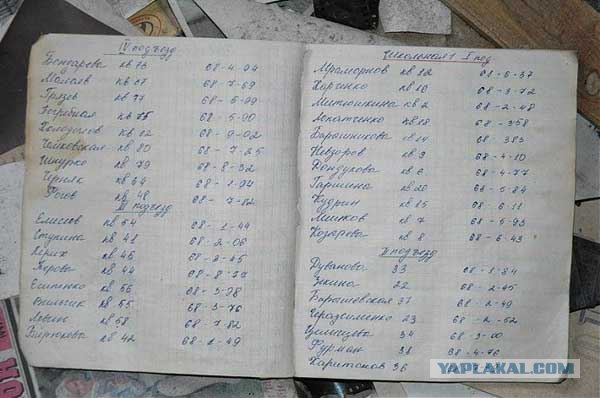 IV подъезд
Бондарева кв 73 68-4-94
Молаев кв 67 68-7-69
Грязев кв 77 68-5-99
Погребная кв 75 68-5-90
Холодолов кв 62 68-9-02
Чайковская кв 80 68-7-25
Шнурко кв 79 68-8-32
Черняк кв 64 68-1-94
Рогов кв 48 68-7-82
III подъезд
Елисеев кв 54 68-1-44
Ступина кв 41 68-2-06
кв 46 68-2-45
кв 44 68-8-77
Есипенко кв 56 68-3-78
кв 55 68-3-76
кв 58 68-7-82
Бирюкова кв 42 68-1-49
Школьная 1 I под
Мраморнов кв 12 68-6-37
Харченко кв 10 68-3-72
Митюшкина кв 2 68-2-48
Лопатченко кв 18 68-358
Барашникова кв 14 68 383
Невзоров кв 9 68-4-10
Кондукова кв 6 68-4-77
Гаршина кв 20 68-5-84
Кудрин кв 15 68-6-11
Мешков кв 7 68-5-93
Козарева кв 8 68-6-43
II подъезд
Дуванова 33 68-1-84
Зекина 22 68-2-45
Борошевская 37 68-2-49
Герасименко 23 68-2-52
34 68-3-00
Фурман 38 68-4-76
Харитонов 36
YAPLAKAL.COM